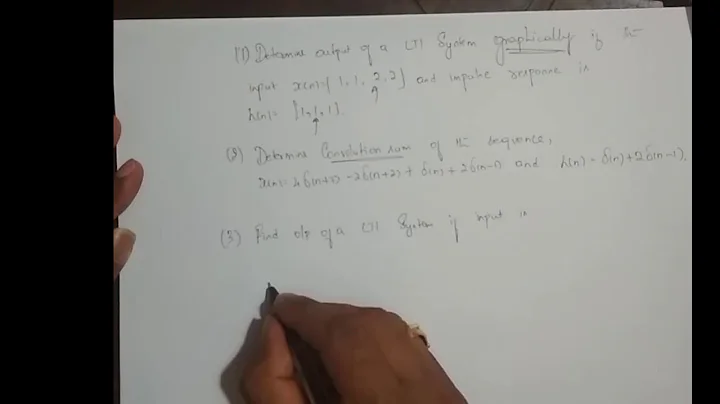 (1) Determine output of a LTI System graphically if the
input x(n)={1, 1, 2, 2} and impulse response is
h(n)= {1, 1, 1}.
(2) Determine Convolution sum of the sequence,
δ(n+2) - 2δ(n+2) + δ(n) + 2δ(n-1) and h(n) = δ(n)+2δ(n-1).
(3) Find o/p of a LTI System if input is